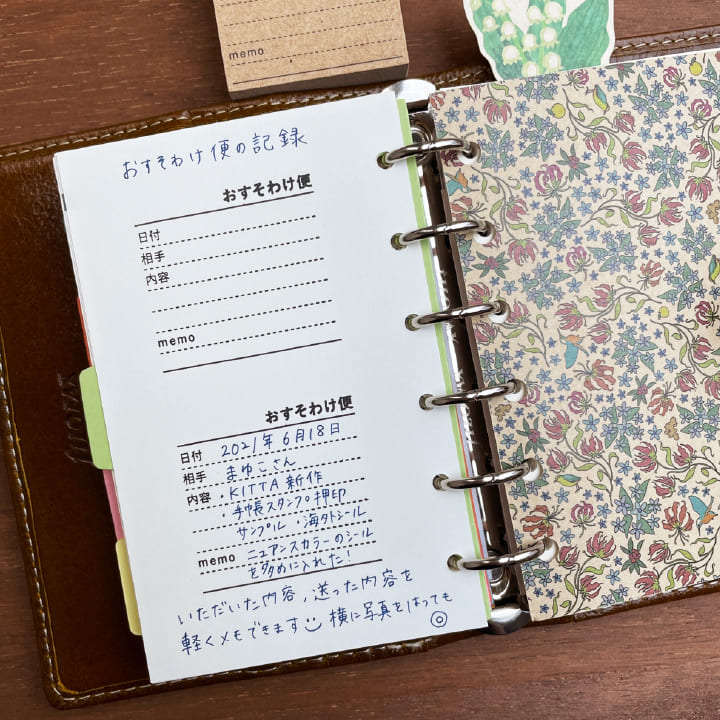 memo
おすそわけ便の記録
おすそわけ便
日付
相手
内容
memo
おすそわけ便
日付 2021年6月18日
相手 まゆこさん
内容 ・KITTA新作
・手帳スタンプ押印
サンプル ・海外シール
memo ニュアンスカラーのシール
を多めに入れた!
いただいた内容、送った内容を
軽くメモできます 横に写真をはっても
◎
filofax